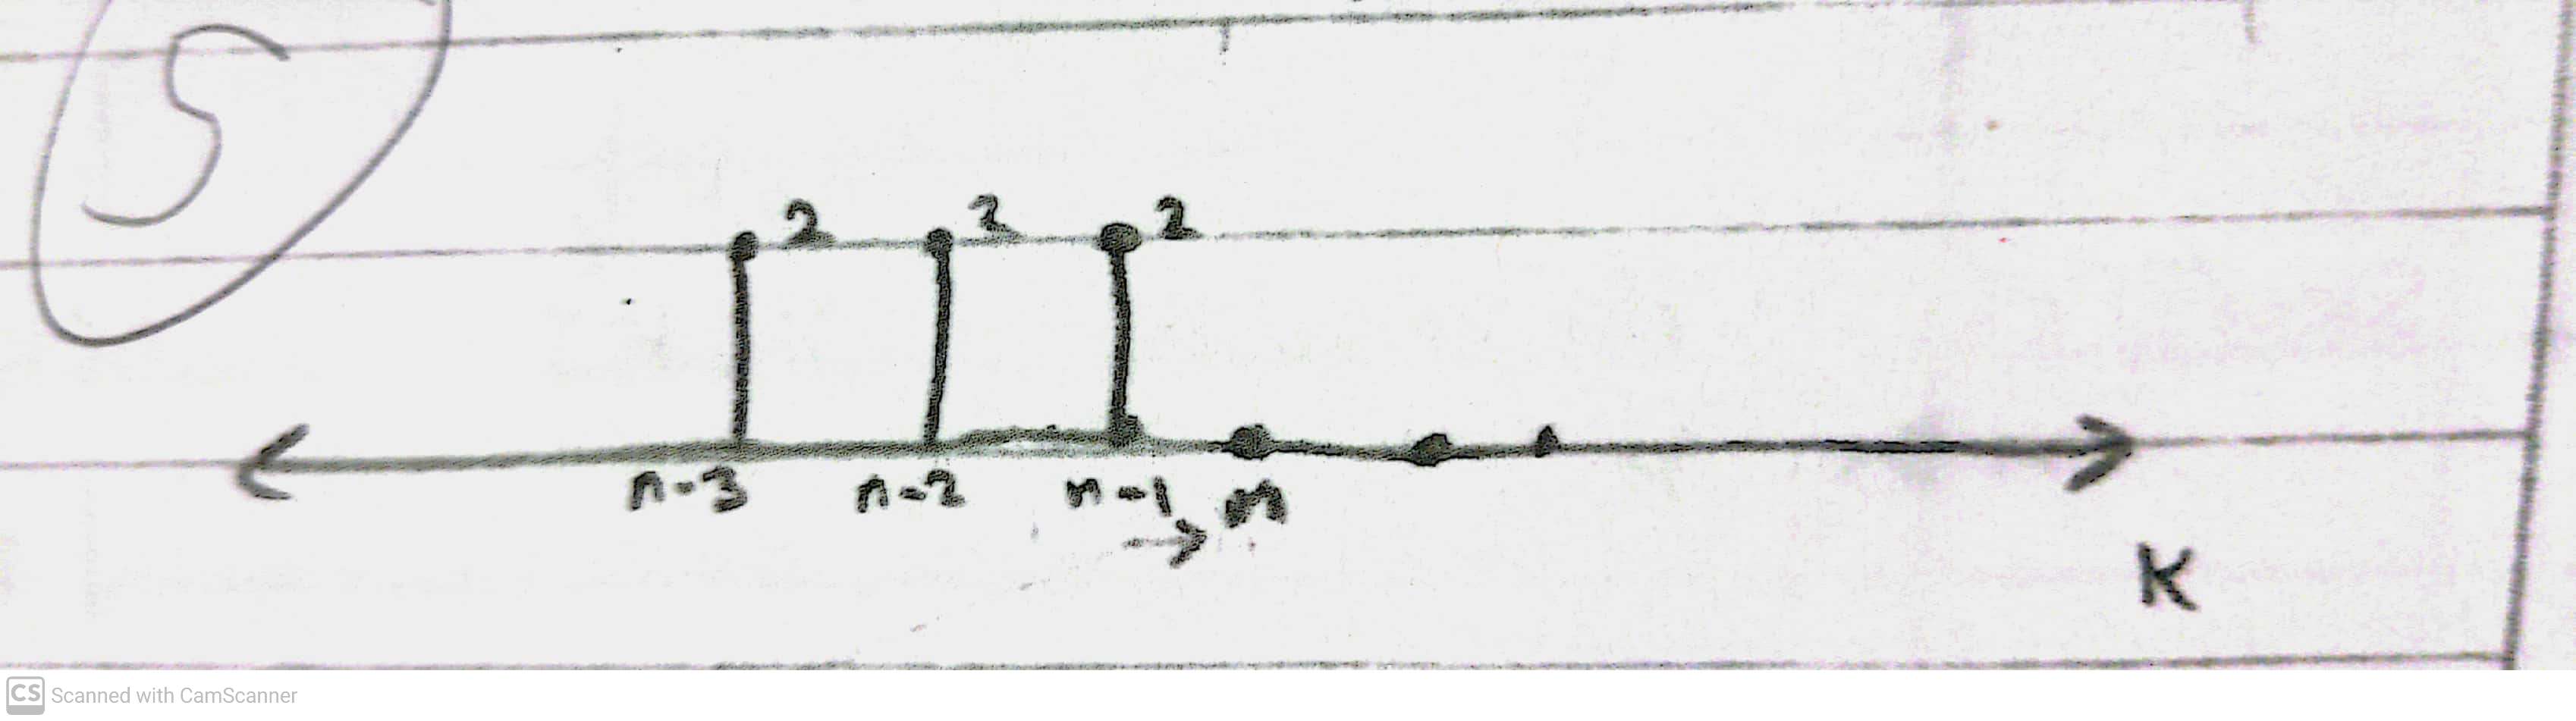 5
2 2 2
n-3 n-2 n-1 n
→
K
CS Scanned with CamScanner